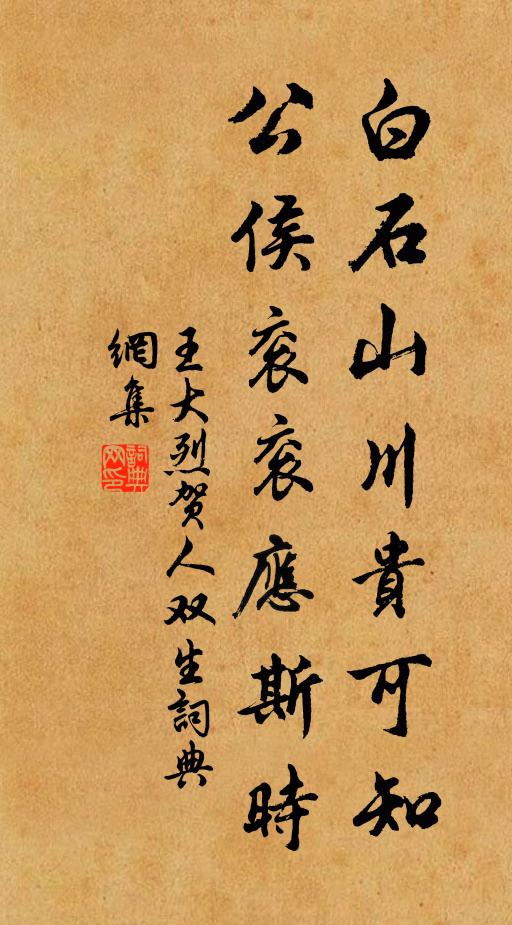 白石山川貴可知
公侯衮衮應斯時
王大烈贺人双生詞典
網集
詞典
网印